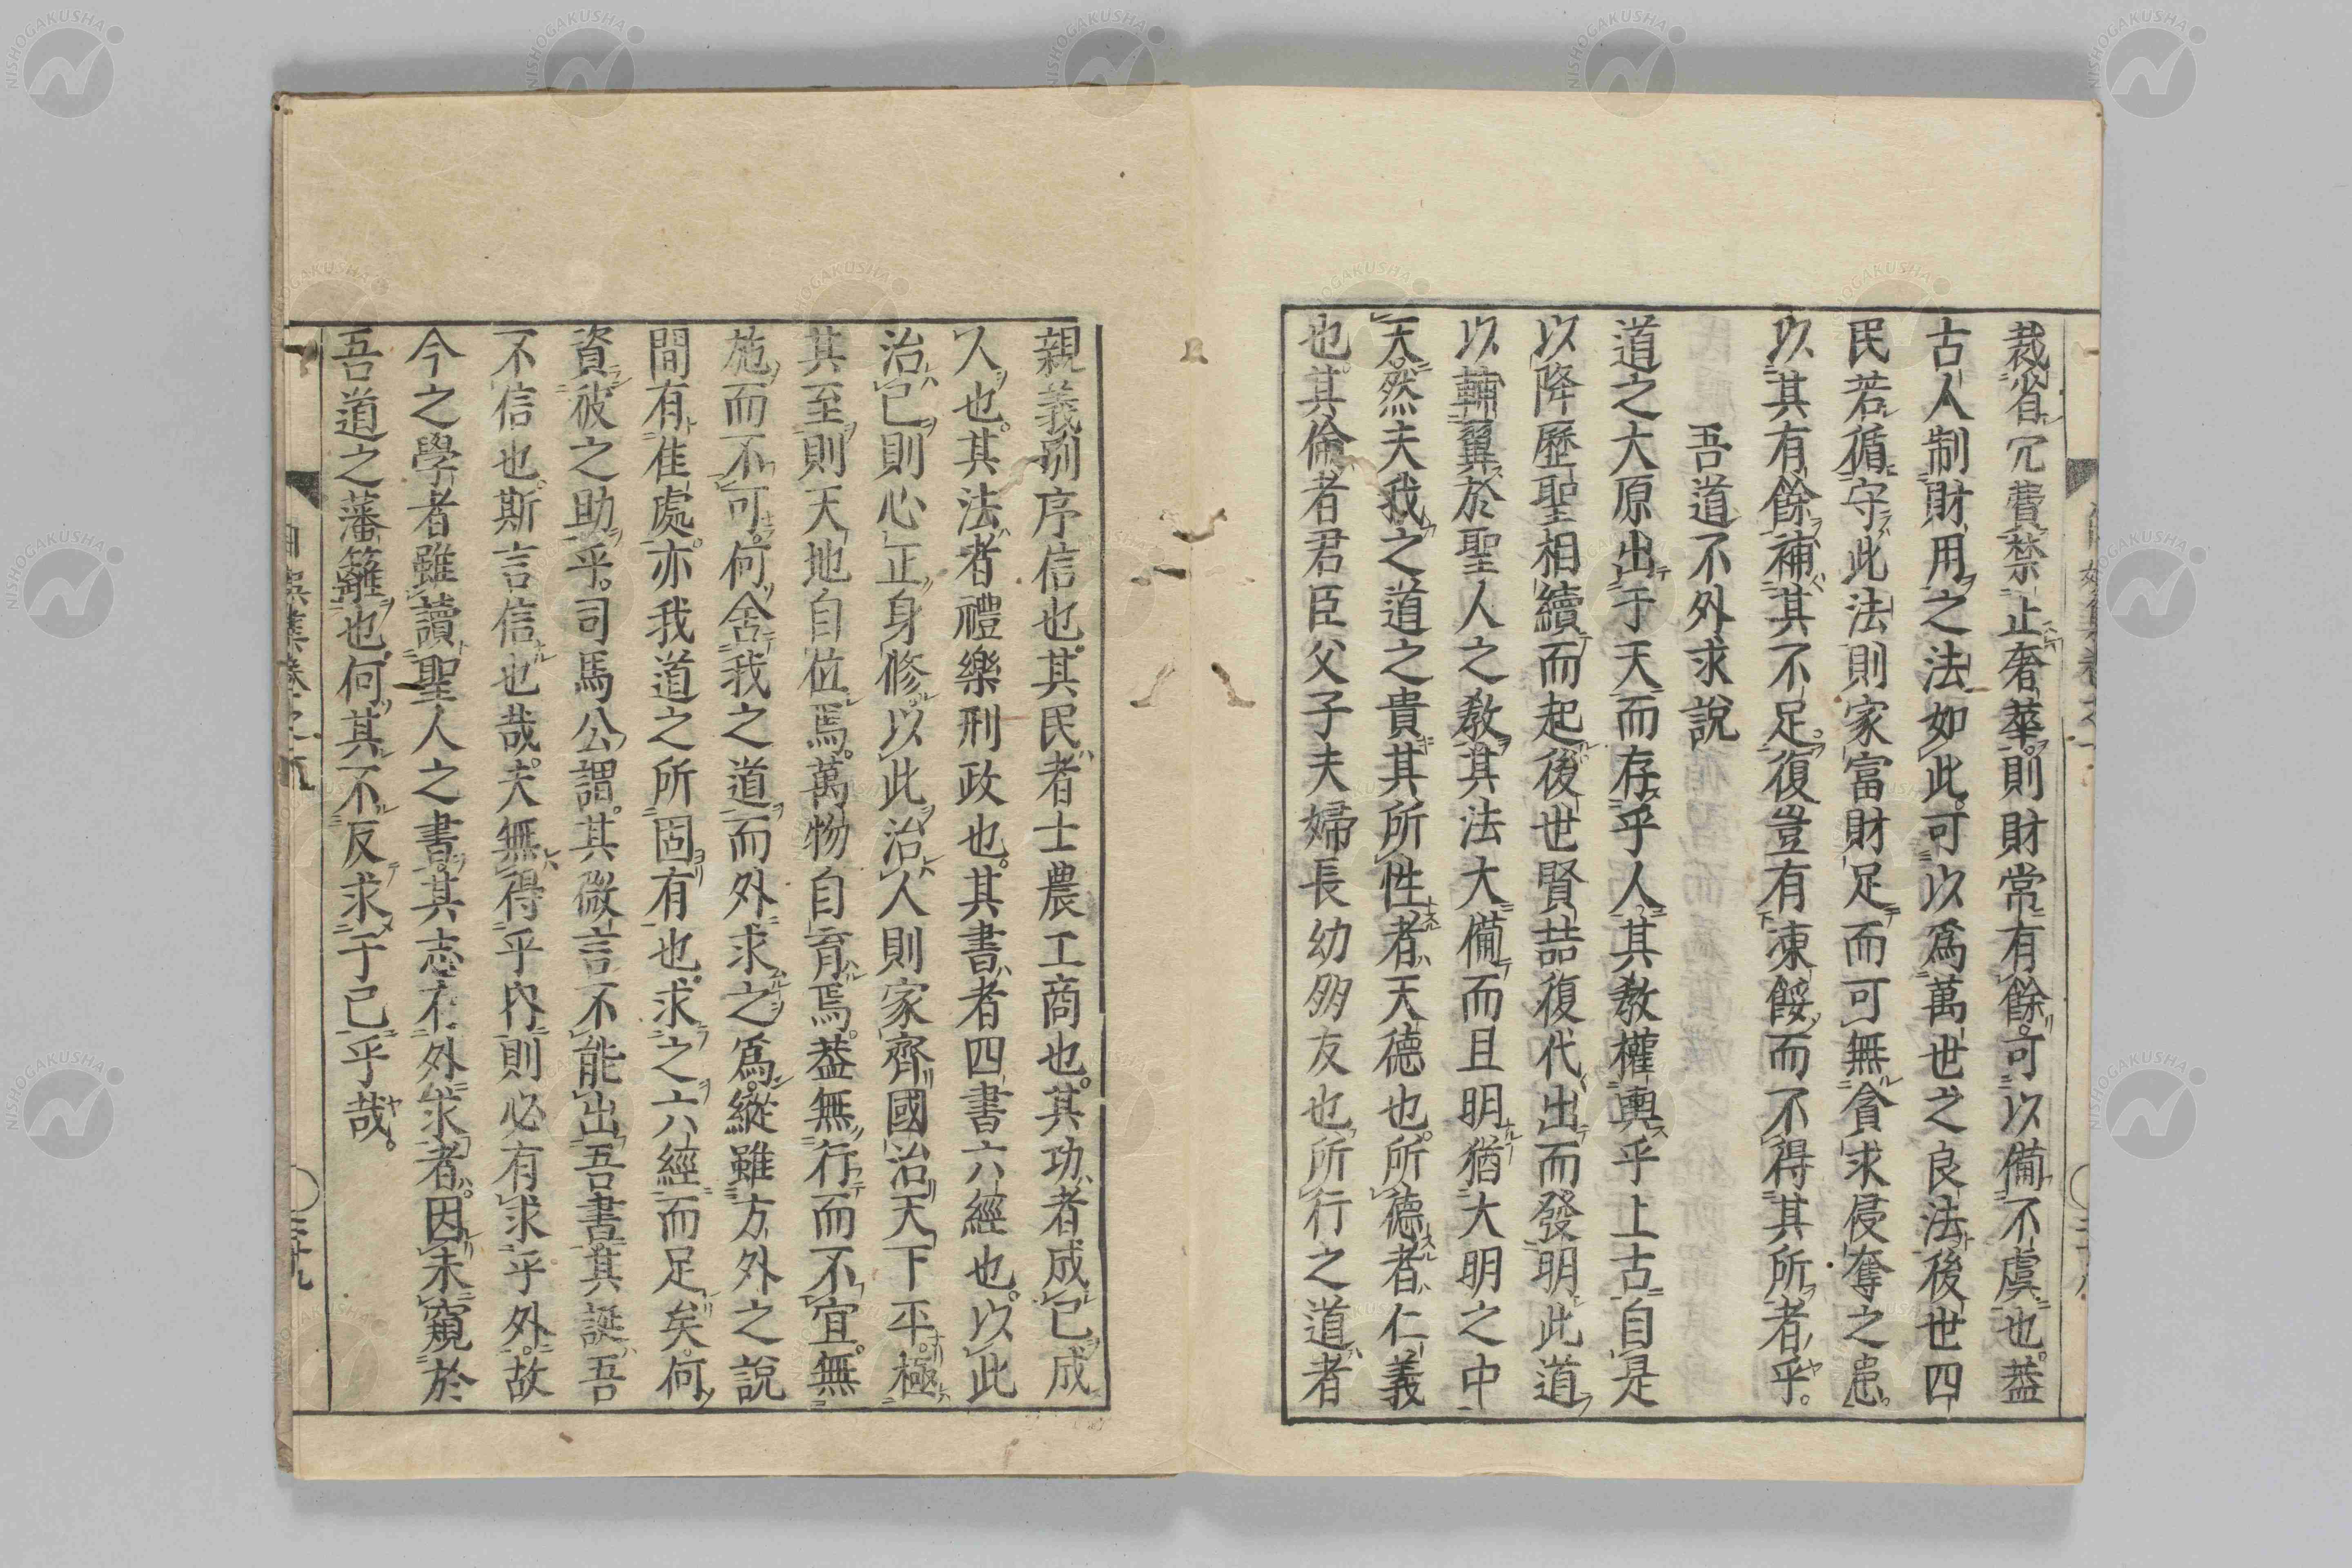 裁省冗費禁止奢華則財常有餘可以備不虞也蓋
古人制財用之法如此可以爲萬世之良法後世四
民若循守此法則家富財足而可無貪求侵奪之患
以其有餘補其不足復豈有凍餒而不得其所者乎
吾道不外求說
道之大原出于天而存乎人其教權輿乎上古自是
以降歷聖相續而起後世賢喆復代出而發明此道
以輔翼於聖人之教其法大備而且明猶大明之中
天然夫我之道之貴其所性者天德也所德者仁義
也其倫者君臣父子夫婦長幼朋友也所行之道者
親義別序信也其民者士農工商也其功者成己成
人也其法者禮樂刑政也其書者四書六經也以此
治己則心正身修以此治人則家齊國治天下平極
其至則天地自位焉萬物自育焉蓋無行而不宜無
施而不可何舍我之道而外求之爲縱雖方外之說
間有佳處亦我道之所固有也求之六經而足矣何
資彼之助乎司馬公謂其微言不能出吾書其誕吾
不信也斯言信也哉夫無得乎內則必有求乎外故
今之學者雖讀聖人之書其志在外求者因未窺於
吾道之藩籬也何其不反求于己乎哉
NISHOGAKUSHA